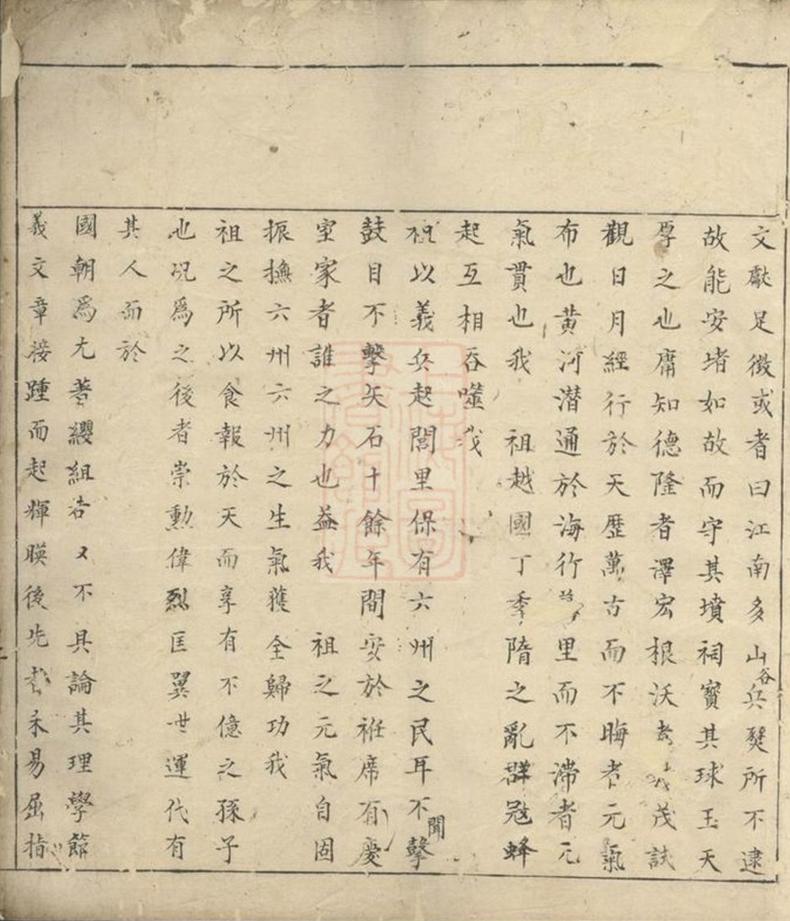 文獻足徵或者曰江南多山谷兵燹所不逮
故能安堵如故而守其墳祠寳其球玉天
厚之也庸知德隆者澤宏根沃者茂試
觀日月經行於天歷萬古而不晦者元氣
布也黄河潜通於海行里而不滯者元
氣貫也我　祖越國丁季隋之亂群冦蜂
起互相吞噬我
祖以義兵起閭里保有六州之民耳不聞
鼓目不擊矢石十餘年間安於袵席有慶
室家者誰之力也益我　祖之元氣自固
振撫六州六州之生氣獲全歸功我
祖之所以食報於天而享有不億之孫子
也况爲之後者崇勳偉烈匡翼世運代有
其人而於
國朝爲尤著纓組者又不具論其理學節
義文章接踵而起輝暎後先未易屈指